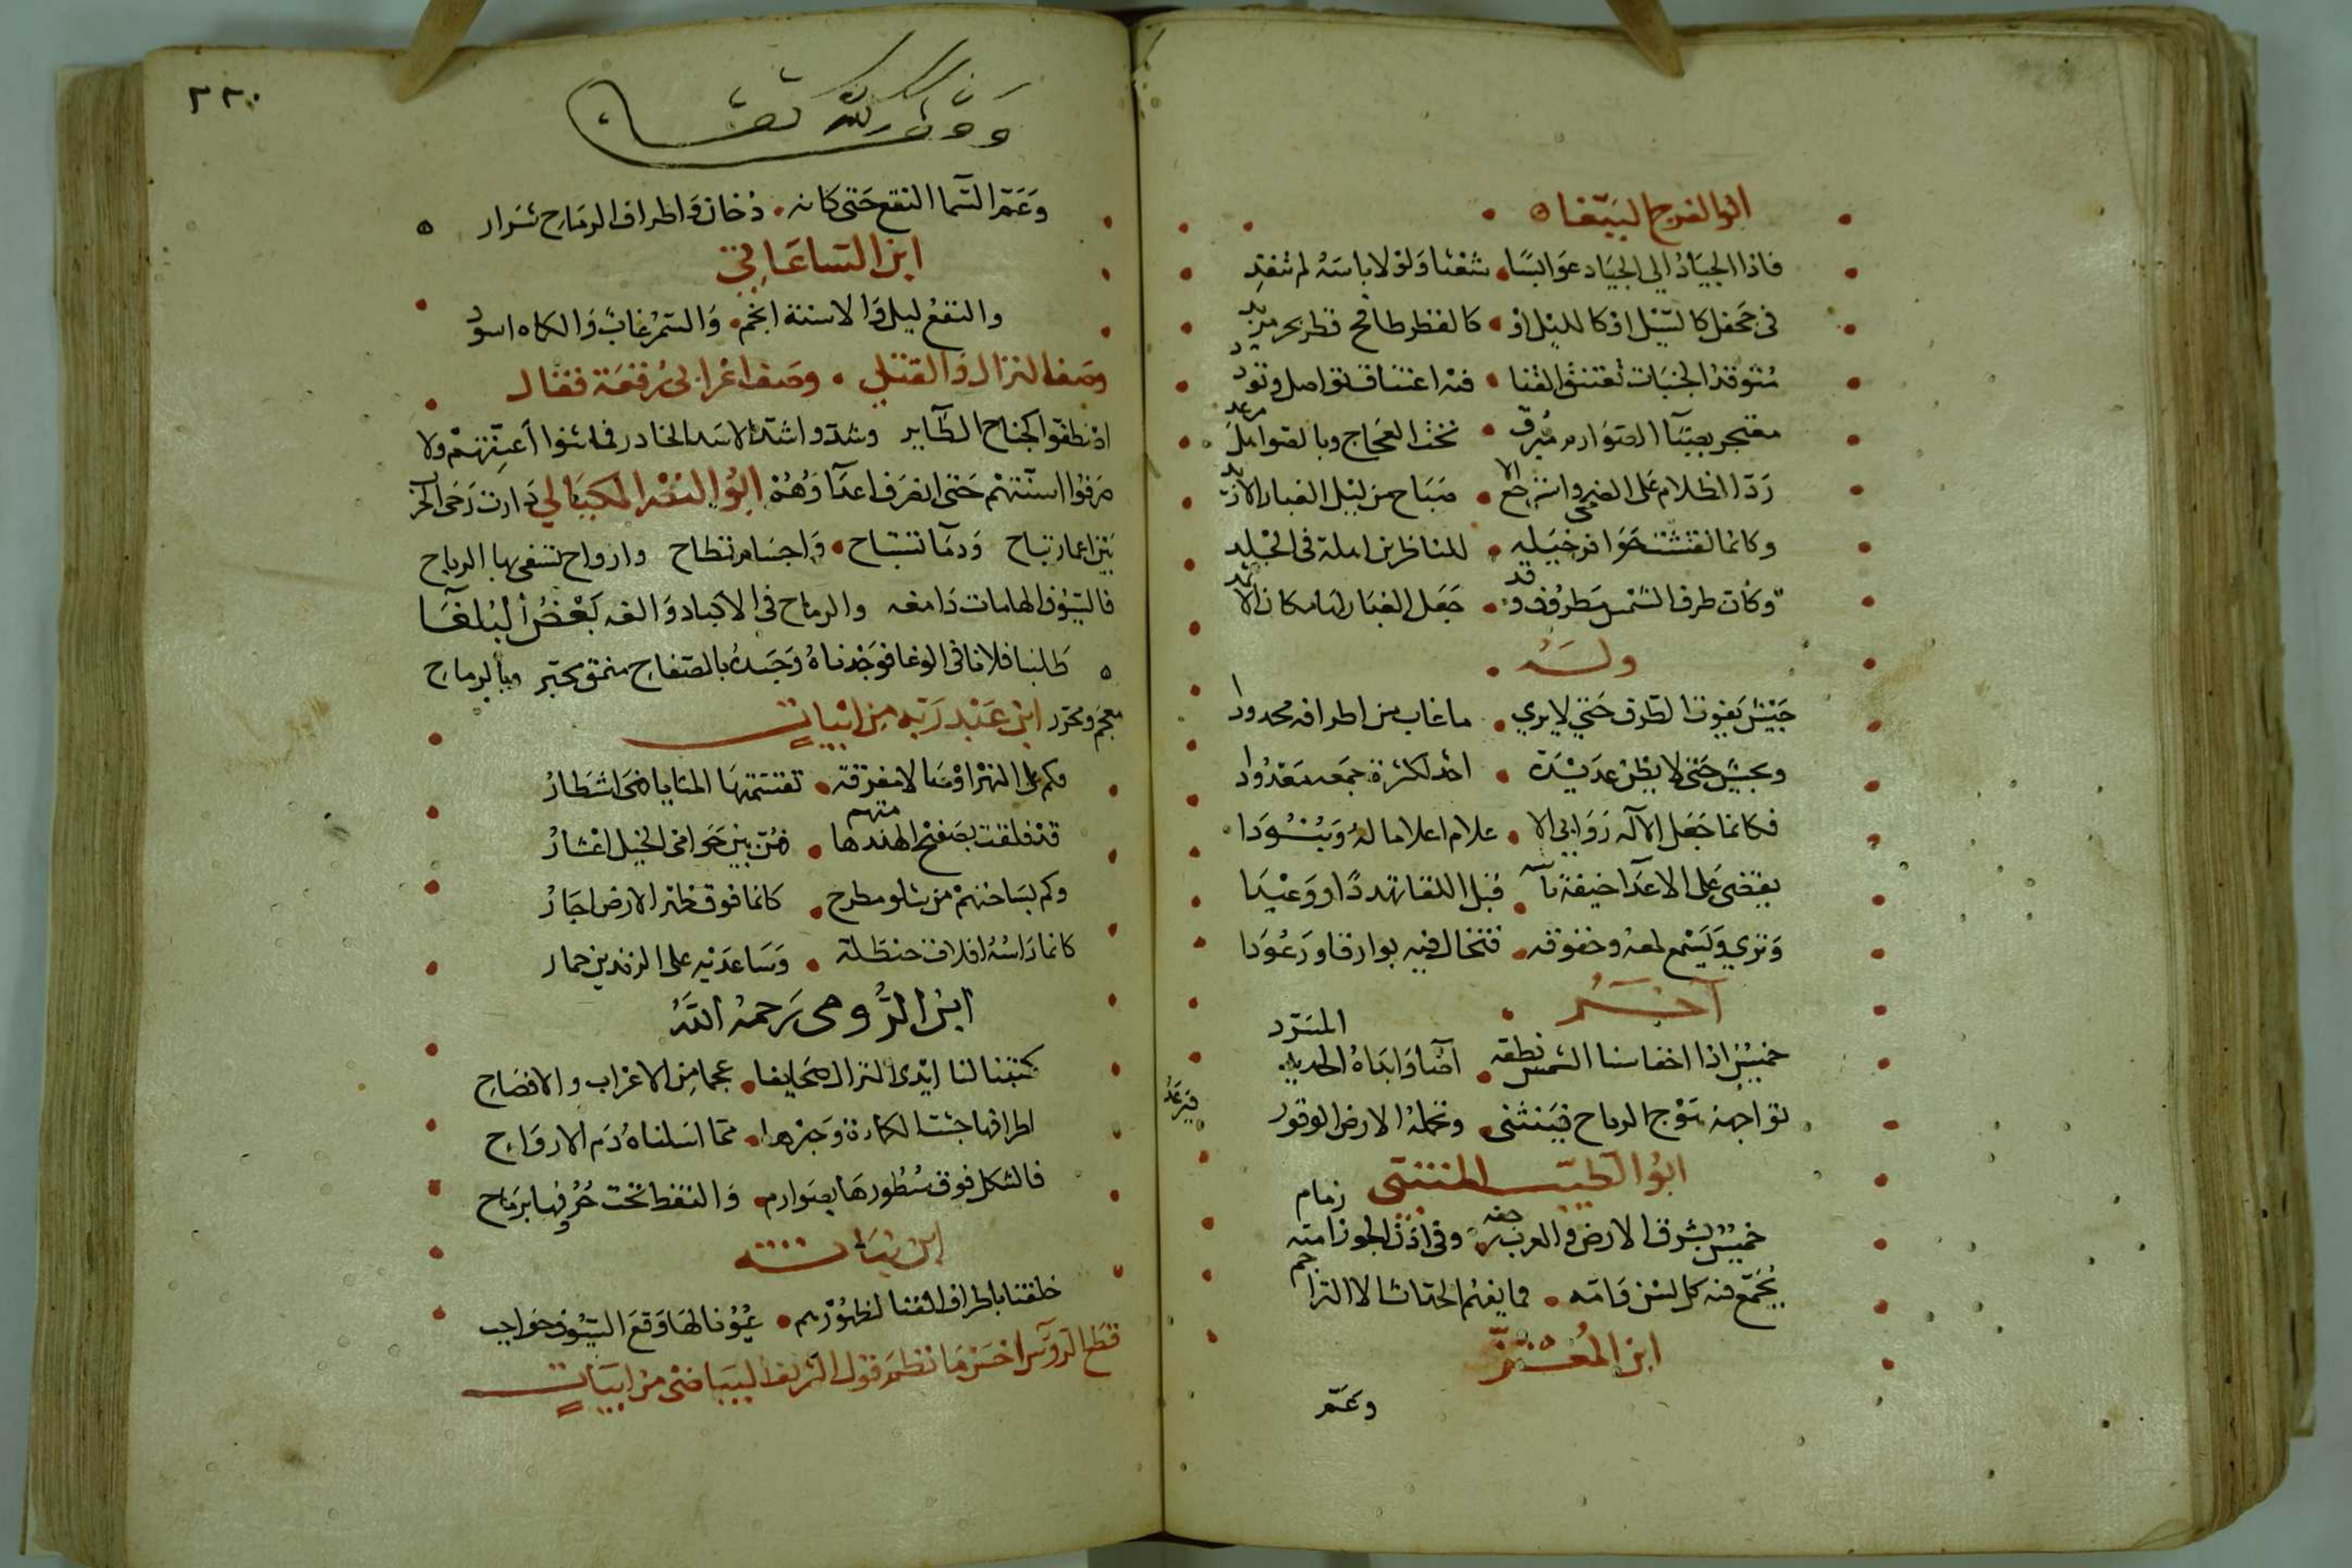 ابو الفرج الببغا
فاذا الجياد الي الجياد عوابسا شعثا ولولا باسه لم تنقد
في جحفل كالسيل او كالليل او كالقطر طافح قطر بحر مزبد
متوقد الجنبات تعتنق القنا فيه اعتناق تواصل وتودد
منفجر بصبا الصوارم مبرق تحت العجاج وبالصواهل مرعد
رد الظلام على الضحى واسترجع الا صباح من ليل الغبار الاربد
وكانما نقشت حوافر خيله للناظرين اهلة في الجلمد
وكان طرف الشمس مطروف وقد جعل الغبار لها مكان الاثمد
وله
جيش يفوت الطرف حتي لا يري ما غاب من اطرافه محدودا
احد لكثرة جمعه معدودا
فكانما جعل الاله روابي الا علام اعلاما له وبنودا
يقضي على الاعدا خيفة قبل اللقا تهددا او وعيدا
وتري وتسمع لمعه وخفوقه فتخال فيه بوارقا ورعودا
آخر
خميس اذا اخفا سنا الشمس نطقه المسرد
تواجهه هوج الرياح فينثني وتحمله الارض الوقور فترعد
ابو الطيب المتنبي
خميس بشرق الارض والغرب زحفه وفي اذن الجوزا منه زمام
تجمع فيه كل لسن وامه فما يفهم الحداث الا التراجم
ابن المعتز
وعم
٢٢٠
وقف لله تعا
وعم السما النقع حتى كانه دخان واطراف الرماح شرار
ابن الساعاتي
والنقع ليل والاسنة انجم والسمر غاب والكماه اسود
وصف النزال والقتلي وصف اعرابي وقعة فقال
امتطوا كجناح الطاير وشدوا اشد الاسد الخادر فما ثنوا اعنتهم ولا
صرفوا اسنتهم حتى انصرف اعداوهم ابو النصر المكيالي دارت رحى الحرب
بين اعمار تباح ودما تستباح واجسام تطاح وارواح تسفي بها الرياح
فالسيوف للهامات دامغه والرماح في الاكباد والغه بعض البلغا
طلبنا فلانا في الوغا فوجدناه وجسده بالصفاح منمق محبر وبالرماح
معجم ومحرر ابن عبد ربه من ابيات
وكم على النهر اوصالا مفرقة تقسمتها المنايا فهي اشطار
قد فلقت بصفيح الهند هامهم فهن بين حوافي الخيل اعشار
وكم بساحتهم من شلو مطرح كانما فوق ظهر الارض اجار
كانما راسه افلاق حنظلة وساعديه على الزندين جمار
ابن الرومي رحمه الله
كتبنا لنا ايدى النزال صحايفا عجما من الاعراب والافصاح
مما اسلناه دم الارواح
فالشكل فوق سطورها بصوارم والنقط تحت حروفها برماح
ابن نباته
خلقنا باطراف القنا لظهورهم عيونا لها وقع السيوف حواجب
قطع الروس احسن ما نظم قول الشريف البياضي من ابيات